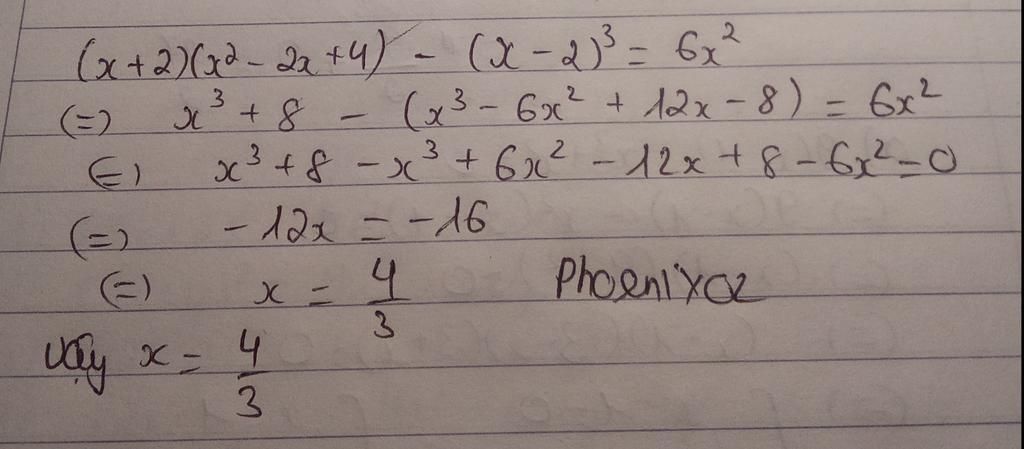 (x+2)(x² - 2x + 4) - (x - 2)³ = 6x²
(=) x³ + 8 - (x³ - 6x² + 12x - 8) = 6x²
(=) x³ + 8 - x³ + 6x² - 12x + 8 - 6x² = 0
(=) - 12x = - 16
(=) x = 4/3 Phoenixoz
Vậy x = 4/3